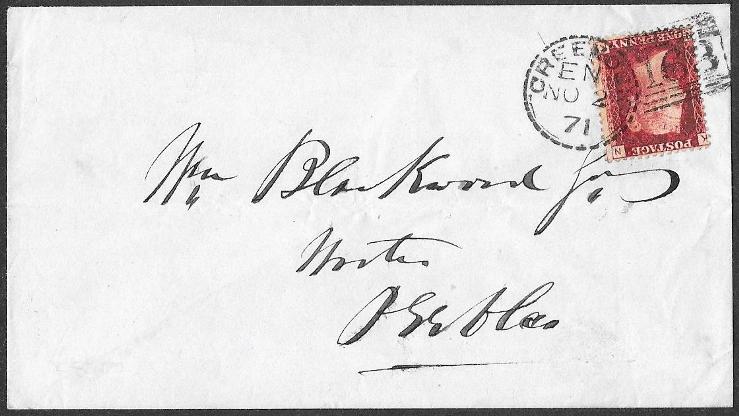 CREE
EN
NO 2
71
163
ONE PENNY
POSTAGE
K N
Wm Blackwood Jr
Writer
Peebles